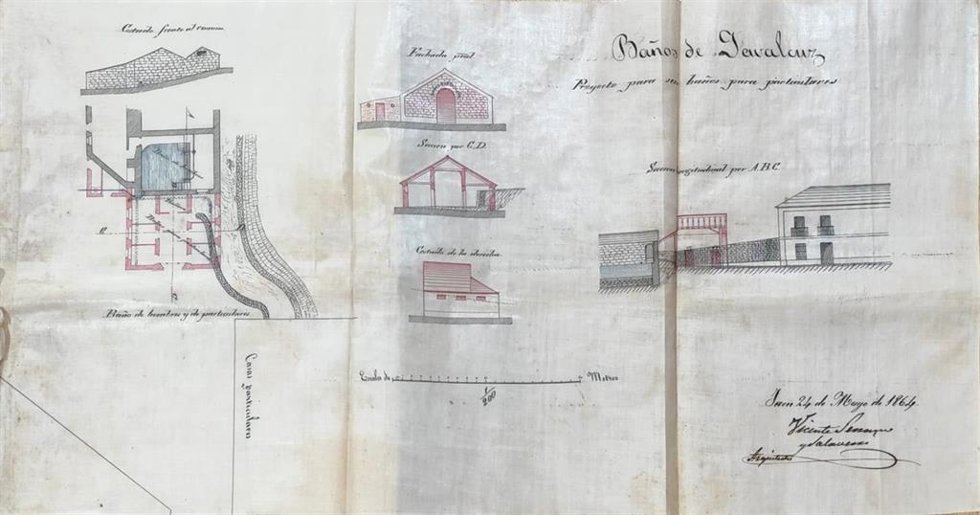 Baños de Jevalcuz
Proyecto para seis baños para particulares
Costado frente al camino
Fachada pral
Seccion por C.D.
Costado de la derecha
Seccion longitudinal por A.B.C.
C
D
Baño de hombres y de particulares
Casas particulares
Escala de
1/200
Metros
Jaen 24 de Mayo de 1864.
Vicente Serrano
y Salaverri
Arquitecto